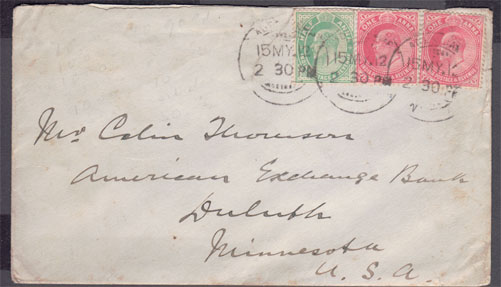 HALF ANNA ONE ANNA ONE ANNA
15 MY 12 15 MY 12 15 MY 12
2 30 PM 2 30 PM 2 30 PM
Mr Colin Thomson
American Exchange Bank
Duluth
Minnesota
U. S. A.